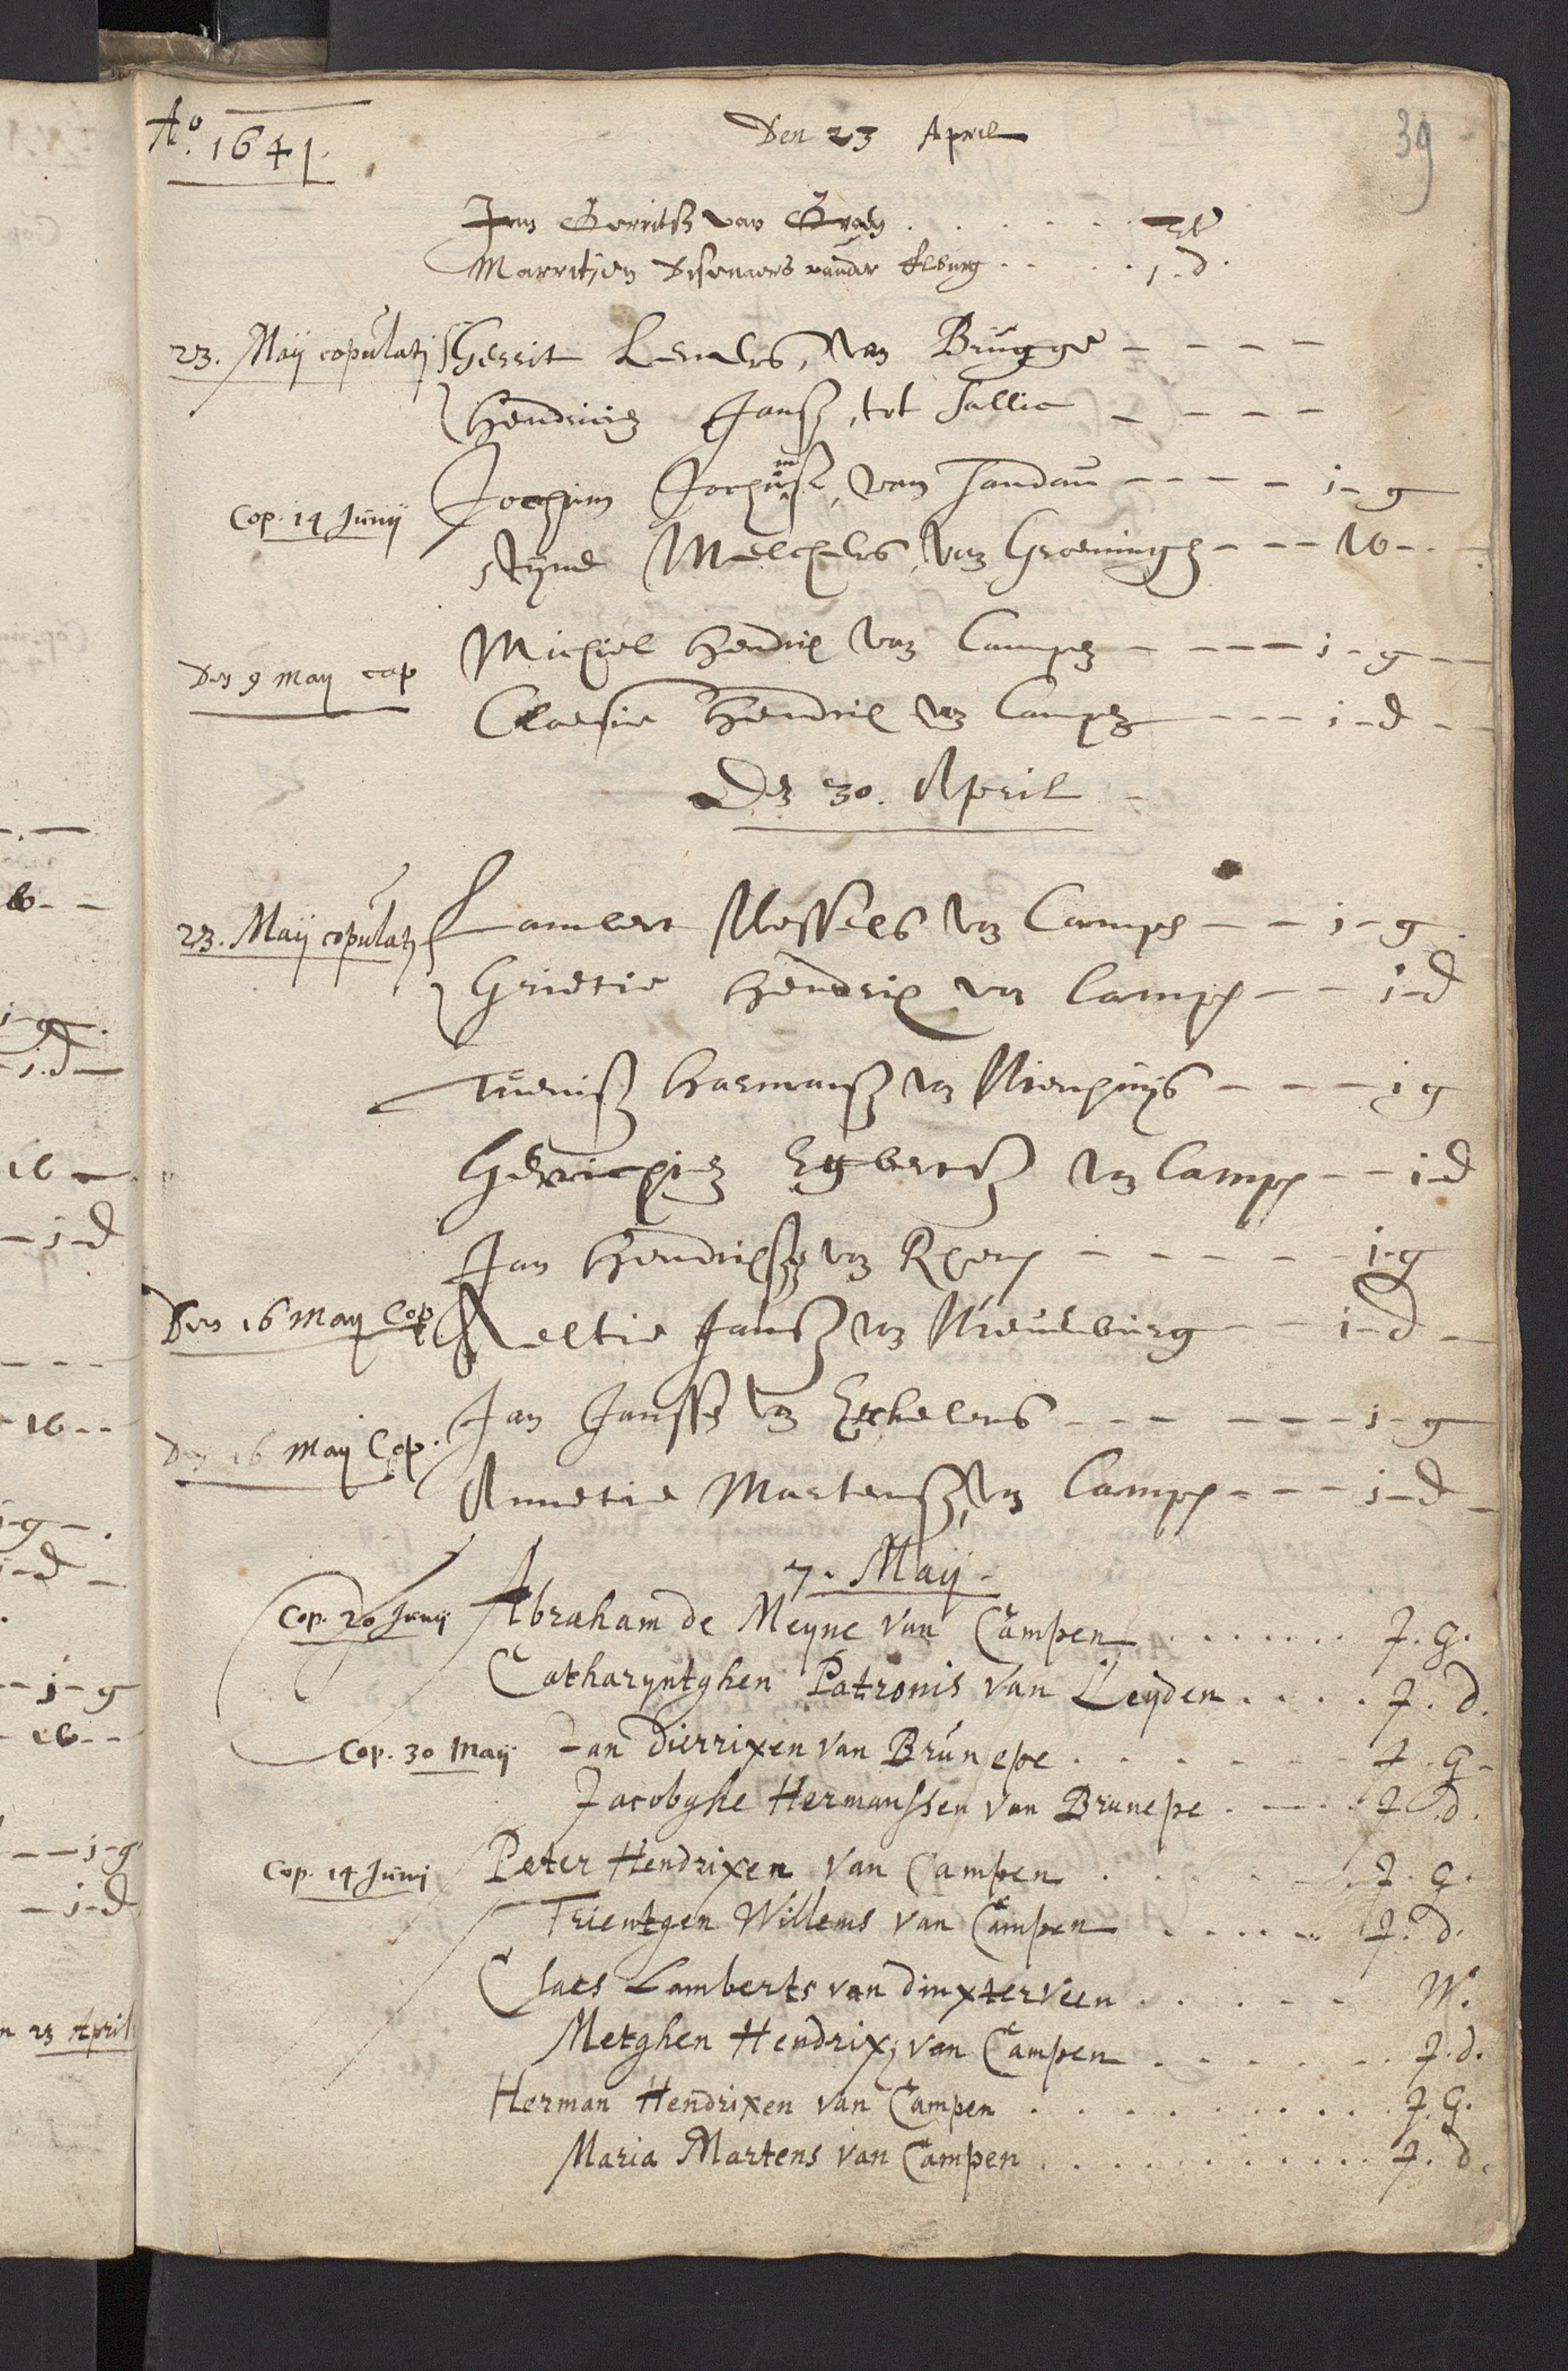 Ao. 1641.
Den 23 April
39
Jan Gerritsz van . . . . . .
Marritjen van der Elburg . . . . . j. d.
23. Maij copulati Gerrit Leenders, van Brugge - - - -
Hendrickien Jansz, tot Sallic - - - -
Cop. 14 Junij Jochim Jochimsz, van Sandau - - - - - j - g
Stijne Melchers, van Groeningen - - - W - -
Den 9 Maij cop Michiel Hendrix van Campen - - - - j - g - -
Claesie Hendrix van Campen - - - j - d - -
Den 30. April
23. Maij copulati Lambert Wessels van Campen - - j - g
Grietie Hendrix van Campen - - j - d
Tuenisz Harmansz van Nienhuijs - - - - j g
Gerrichien Egbertsz van Campen - - j - d
Jan Hendrixsz van Rhenen - - - - - - j - g
Den 16 Maij Cop Aeltie Jansz van Nieuburg - - - j - d -
Den 16 Maij Cop. Jan Jansse van - - - - - - j - g
Annetie Martensz, van Campen - - - j - d -
7. Maij.
Cop. 20 Junij Abraham de Meyne van Campen . . . . . . . J. G.
Catharyntghen Patronis van Leijden . . . . J. d.
Cop. 30 Maij Jan Dierrixen van Brunepe . . . . . . . J. G.
Jacobghe Hermanssen van Brunepe . . . . J. d.
Cop. 14 Junij Peter Hendrixen van Campen . . . . . . J. G.
Trientgen Willems van Campen . . . . . J. d.
Claes Lamberts van dinxterveen . . . . . W.
Metghen Hendrix, van Campen . . . . . . J. d.
Herman Hendrixen van Campen . . . . . . . . . J. G.
Maria Martens van Campen . . . . . . . . . . . J. d.
n 23 April